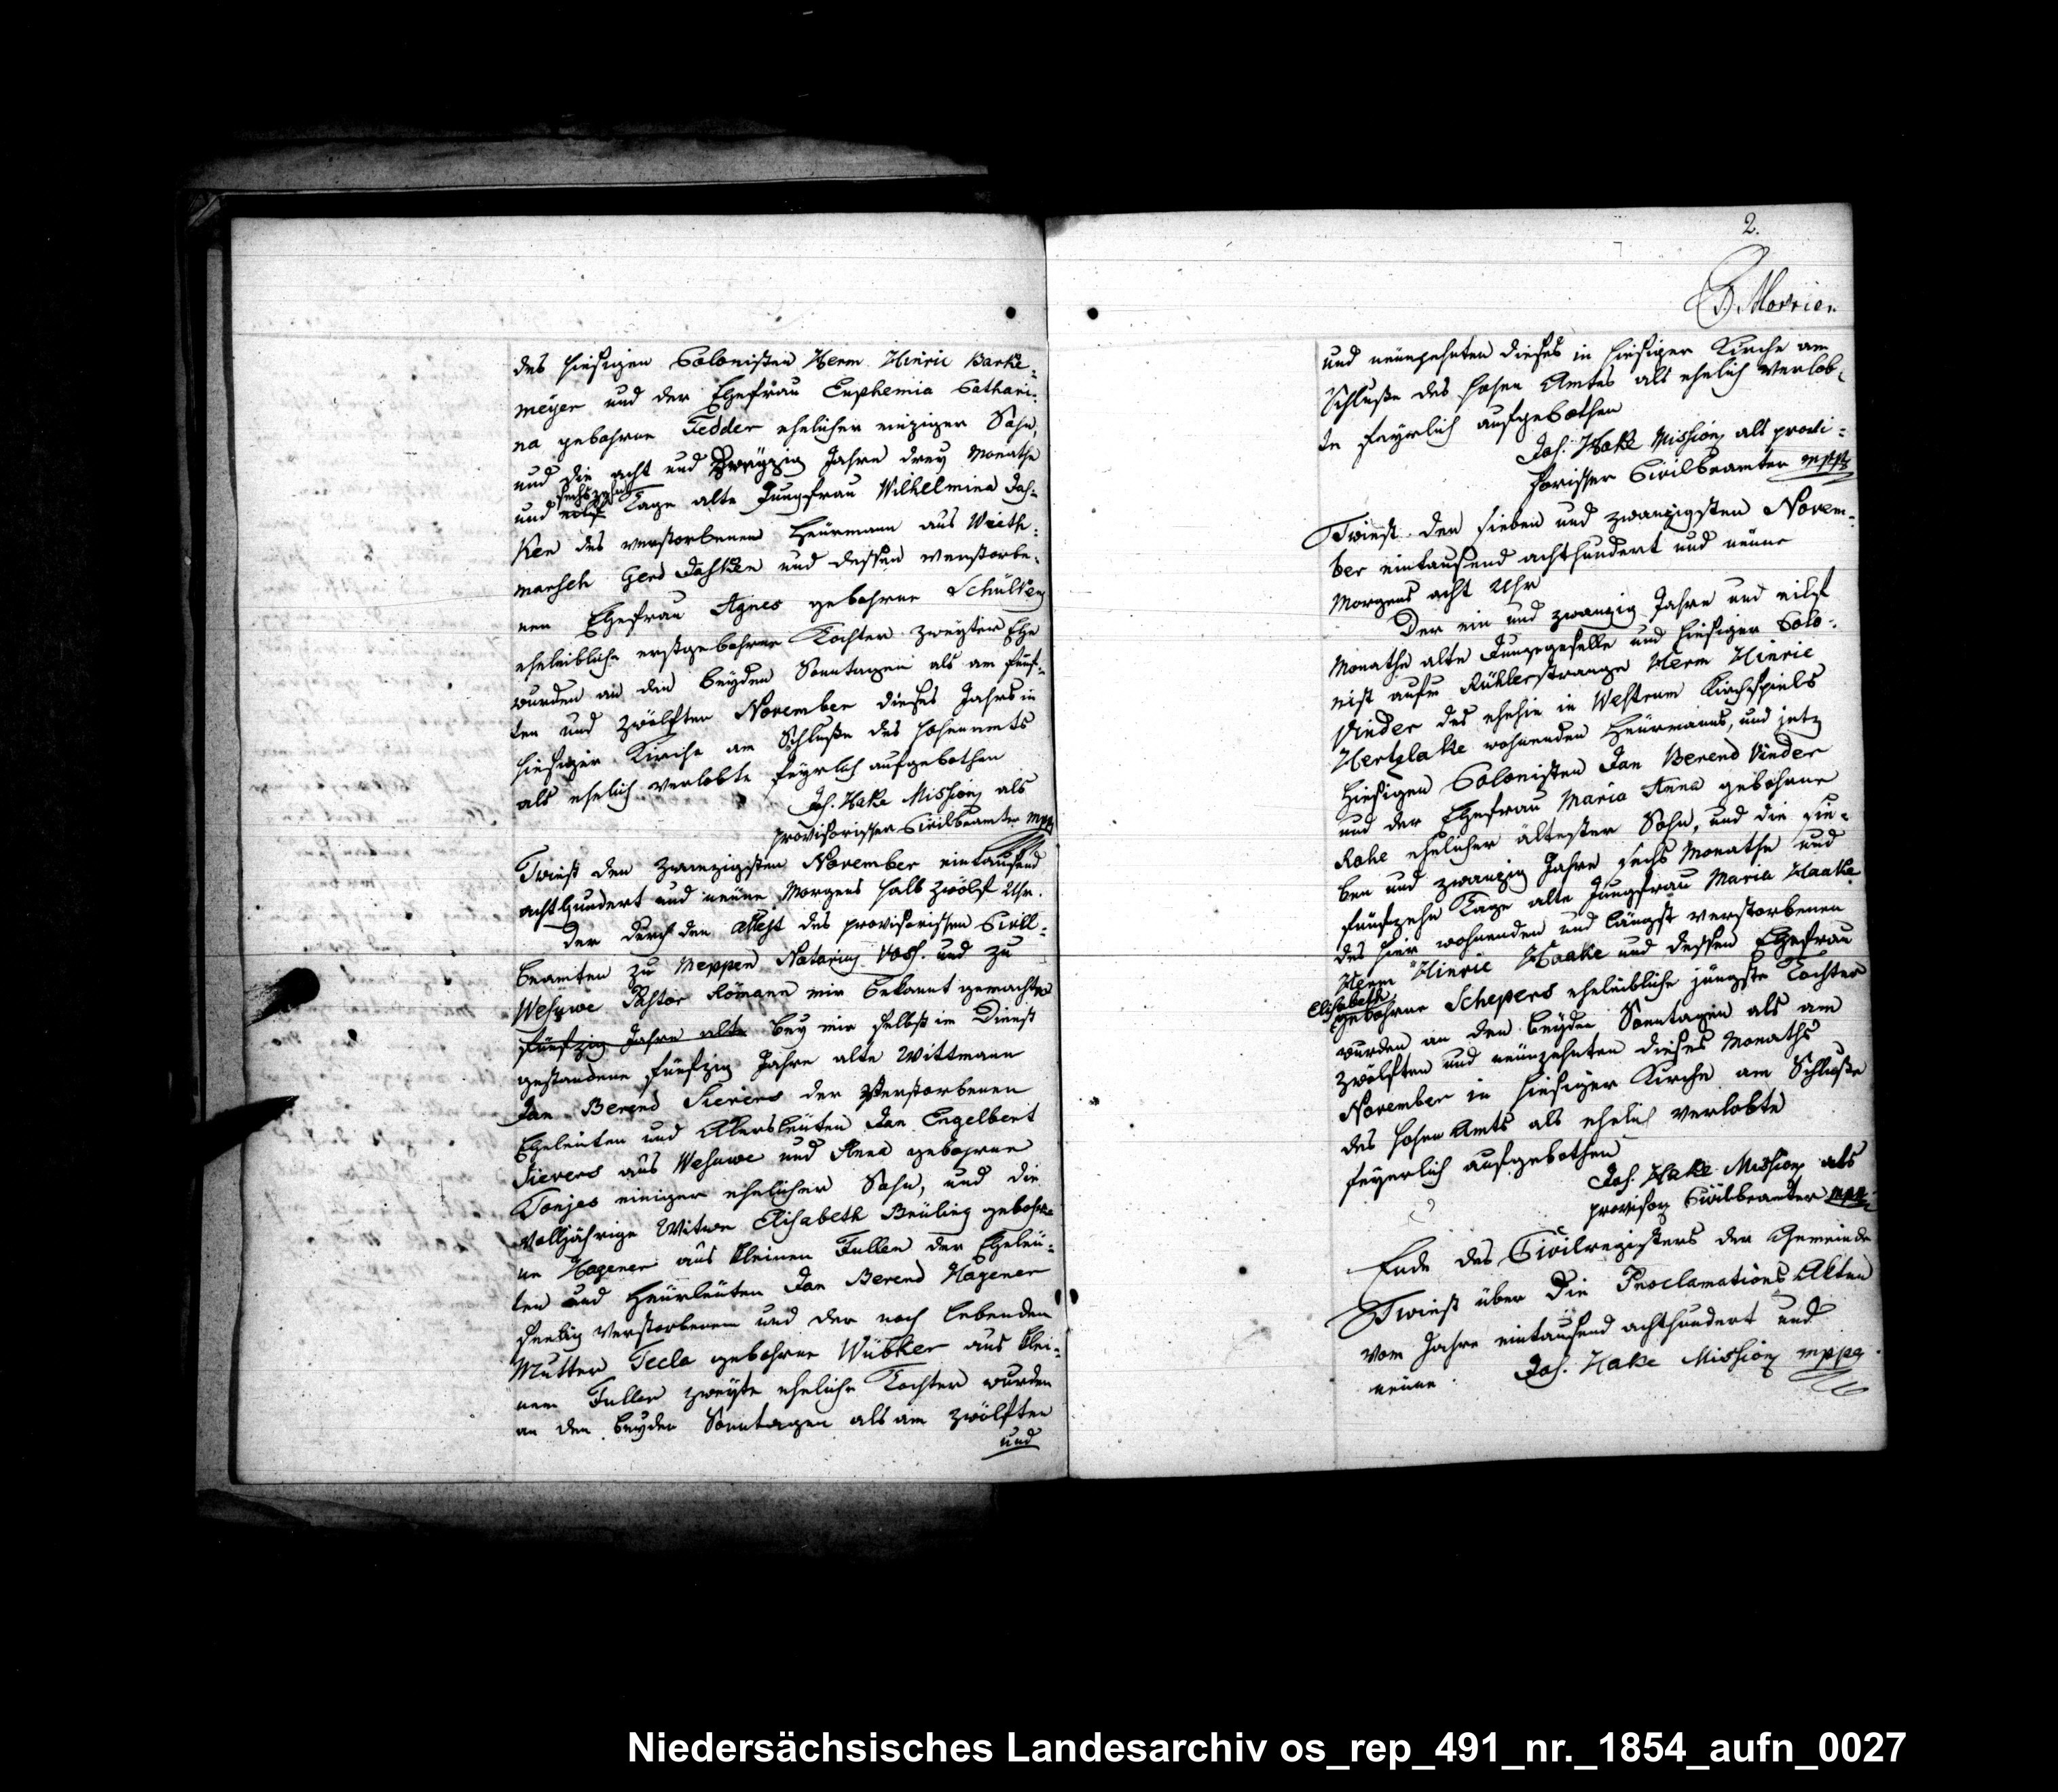 des hiesigen Colonisten Herm Hinric Barke=
meÿer und der Ehefrau Euphemia Cathari=
na gebohrne Tedder ehelicher einziger Sohn,
und die acht und Jahre dreÿ Monathe
und sechszehn eilf Tage alte Jungfrau Wilhelmina Jas=
ken des verstorbenen Heürmann aus Wieth=
marsch Gerd Jasken und dessen verstorbe=
nen Ehefrau Agnes gebohrne Schülken
eheleibliche erstgebohrne Tochter zweÿter Ehe
wurden an den beÿden Sonntagen als am fünf=
ten und zwölften November dieses Jahrs in
hiesiger Kirche am Schluße des hohenamts
als ehelich verlobte feÿrlich aufgebothen
Joh. Hake Mission als
provisorischer Civilbeamter mpp
Twist den zwanzigsten November eintausend
achthundert und neüne Morgens halb zwölf Uhr.
Der durch den Attest des provisorischen Civil=
beamten zu Meppen Notarius Voss. und zu
Wesuwe Pastor Römann mir bekannt gemachte
fünfzig Jahre alte beÿ mir selbst im Dienst
gestandene fünfzig Jahre alte Wittmann
Jan Berend Sievers der verstorbenen
Eheleüten und Jan Engelbert
Sievers aus Wesuwe und Anna gebohrne
Tonjes einiger ehelicher Sohn, und die
volljährige Witwe Elisabeth Beüling gebohr=
ne Hagener aus kleinen Fullen der Eheleü=
ten und Heürleüten Jan Berend Hagener
seelig verstorbenen und der noch lebenden
Mutter Tecla gebohrne Wübker aus klei=
nen Fullen zweÿte eheliche Tochter wurden
an den beÿden Sonntagen als am zwölften
und
2.
und neünzehnten dieses in hiesiger Kirche am
Schluße des hohen Amtes als ehelich verlob=
te feÿrlich aufgebothen
Joh. Hake Mission als provi=
sorischer Civilbeamter mpp
Twist den sieben und zwanzigsten Novem=
ber eintausend achthundert und neüne
Morgens acht Uhr
Der ein und zwanzig Jahre und eilf
Monathe alte Jungeselle und hiesiger Colo=
nist aufm Rühlerstrange Herm Hinric
Vinder des ehehin in Westrum Kirchspiels
Hertzlake wohnenden Heürmanns, und jetz
hiesigen Colonisten Jan Berend Vinder
und der Ehefrau Maria Anna gebohrne
Rohe ehelicher ältester Sohn, und die sie=
ben und zwanzig Jahre sechs Monathe und
fünfzehn Tage alte Jungfrau Maria Haake
des hier wohnenden und längst verstorbenen
Herm Hinric Haake und dessen Ehefrau
Elisabeth
gebohrne Schepers eheleibliche jüngste Tochter
wurden an den beÿden Sonntagen als am
zwölften und neünzehnten dieses Monaths
November in hiesiger Kirche am Schluße
des hohen Amts als ehelich verlobte
feÿerlich aufgebothen
Joh. Hake Mission als
provisor Civilbeamter mpp
Ende des Civilregisters der Gemeinde
Twist über die Proclamations Akten
vom Jahre eintausend achthundert und
neüne. Joh. Hake Mission mppa
Niedersächsisches Landesarchiv os_rep_491_nr._1854_aufn_0027